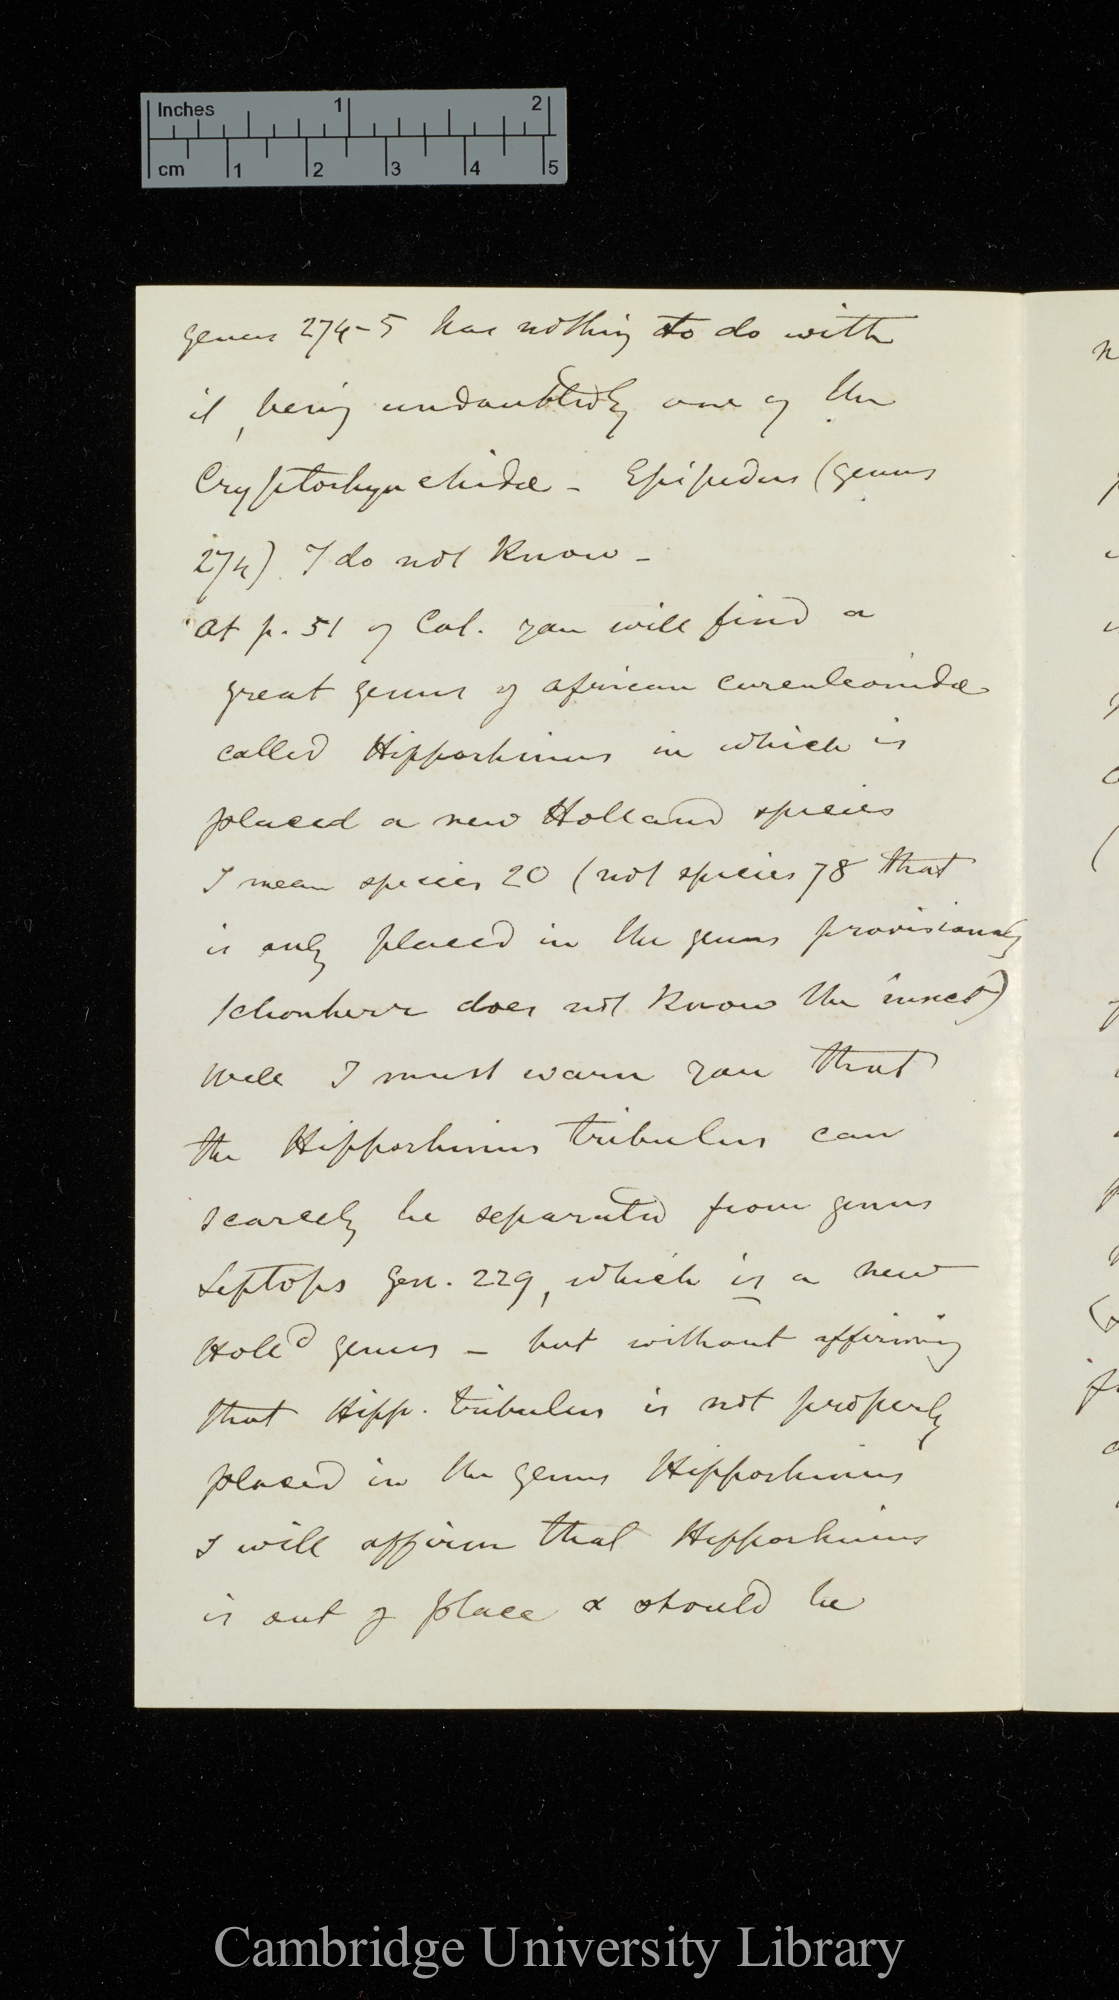 Inches 1 2
cm 1 2 3 4 5
genus 274-5 has nothing to do with
it, being undoubtedly one of the
Cryptorhynchidæ - Epipedus (genus
274) I do not know -
At p. 51 of Cat. you will find a
great genus of african curculionidæ
called Hipporhinus in which is
placed a new Holland species
I mean species 20 (not species 78 that
is only placed in the genus provisionally
Schonherr does not know the insect)
Well I must warn you that
the Hipporhinus tribulus can
scarcely be separated from genus
Leptops gen. 229, which is a new
Holld genus - but without affirming
that Hipp. tribulus is not properly
placed in the genus Hipporhinus
I will affirm that Hipporhinus
is out of place & should be
Cambridge University Library